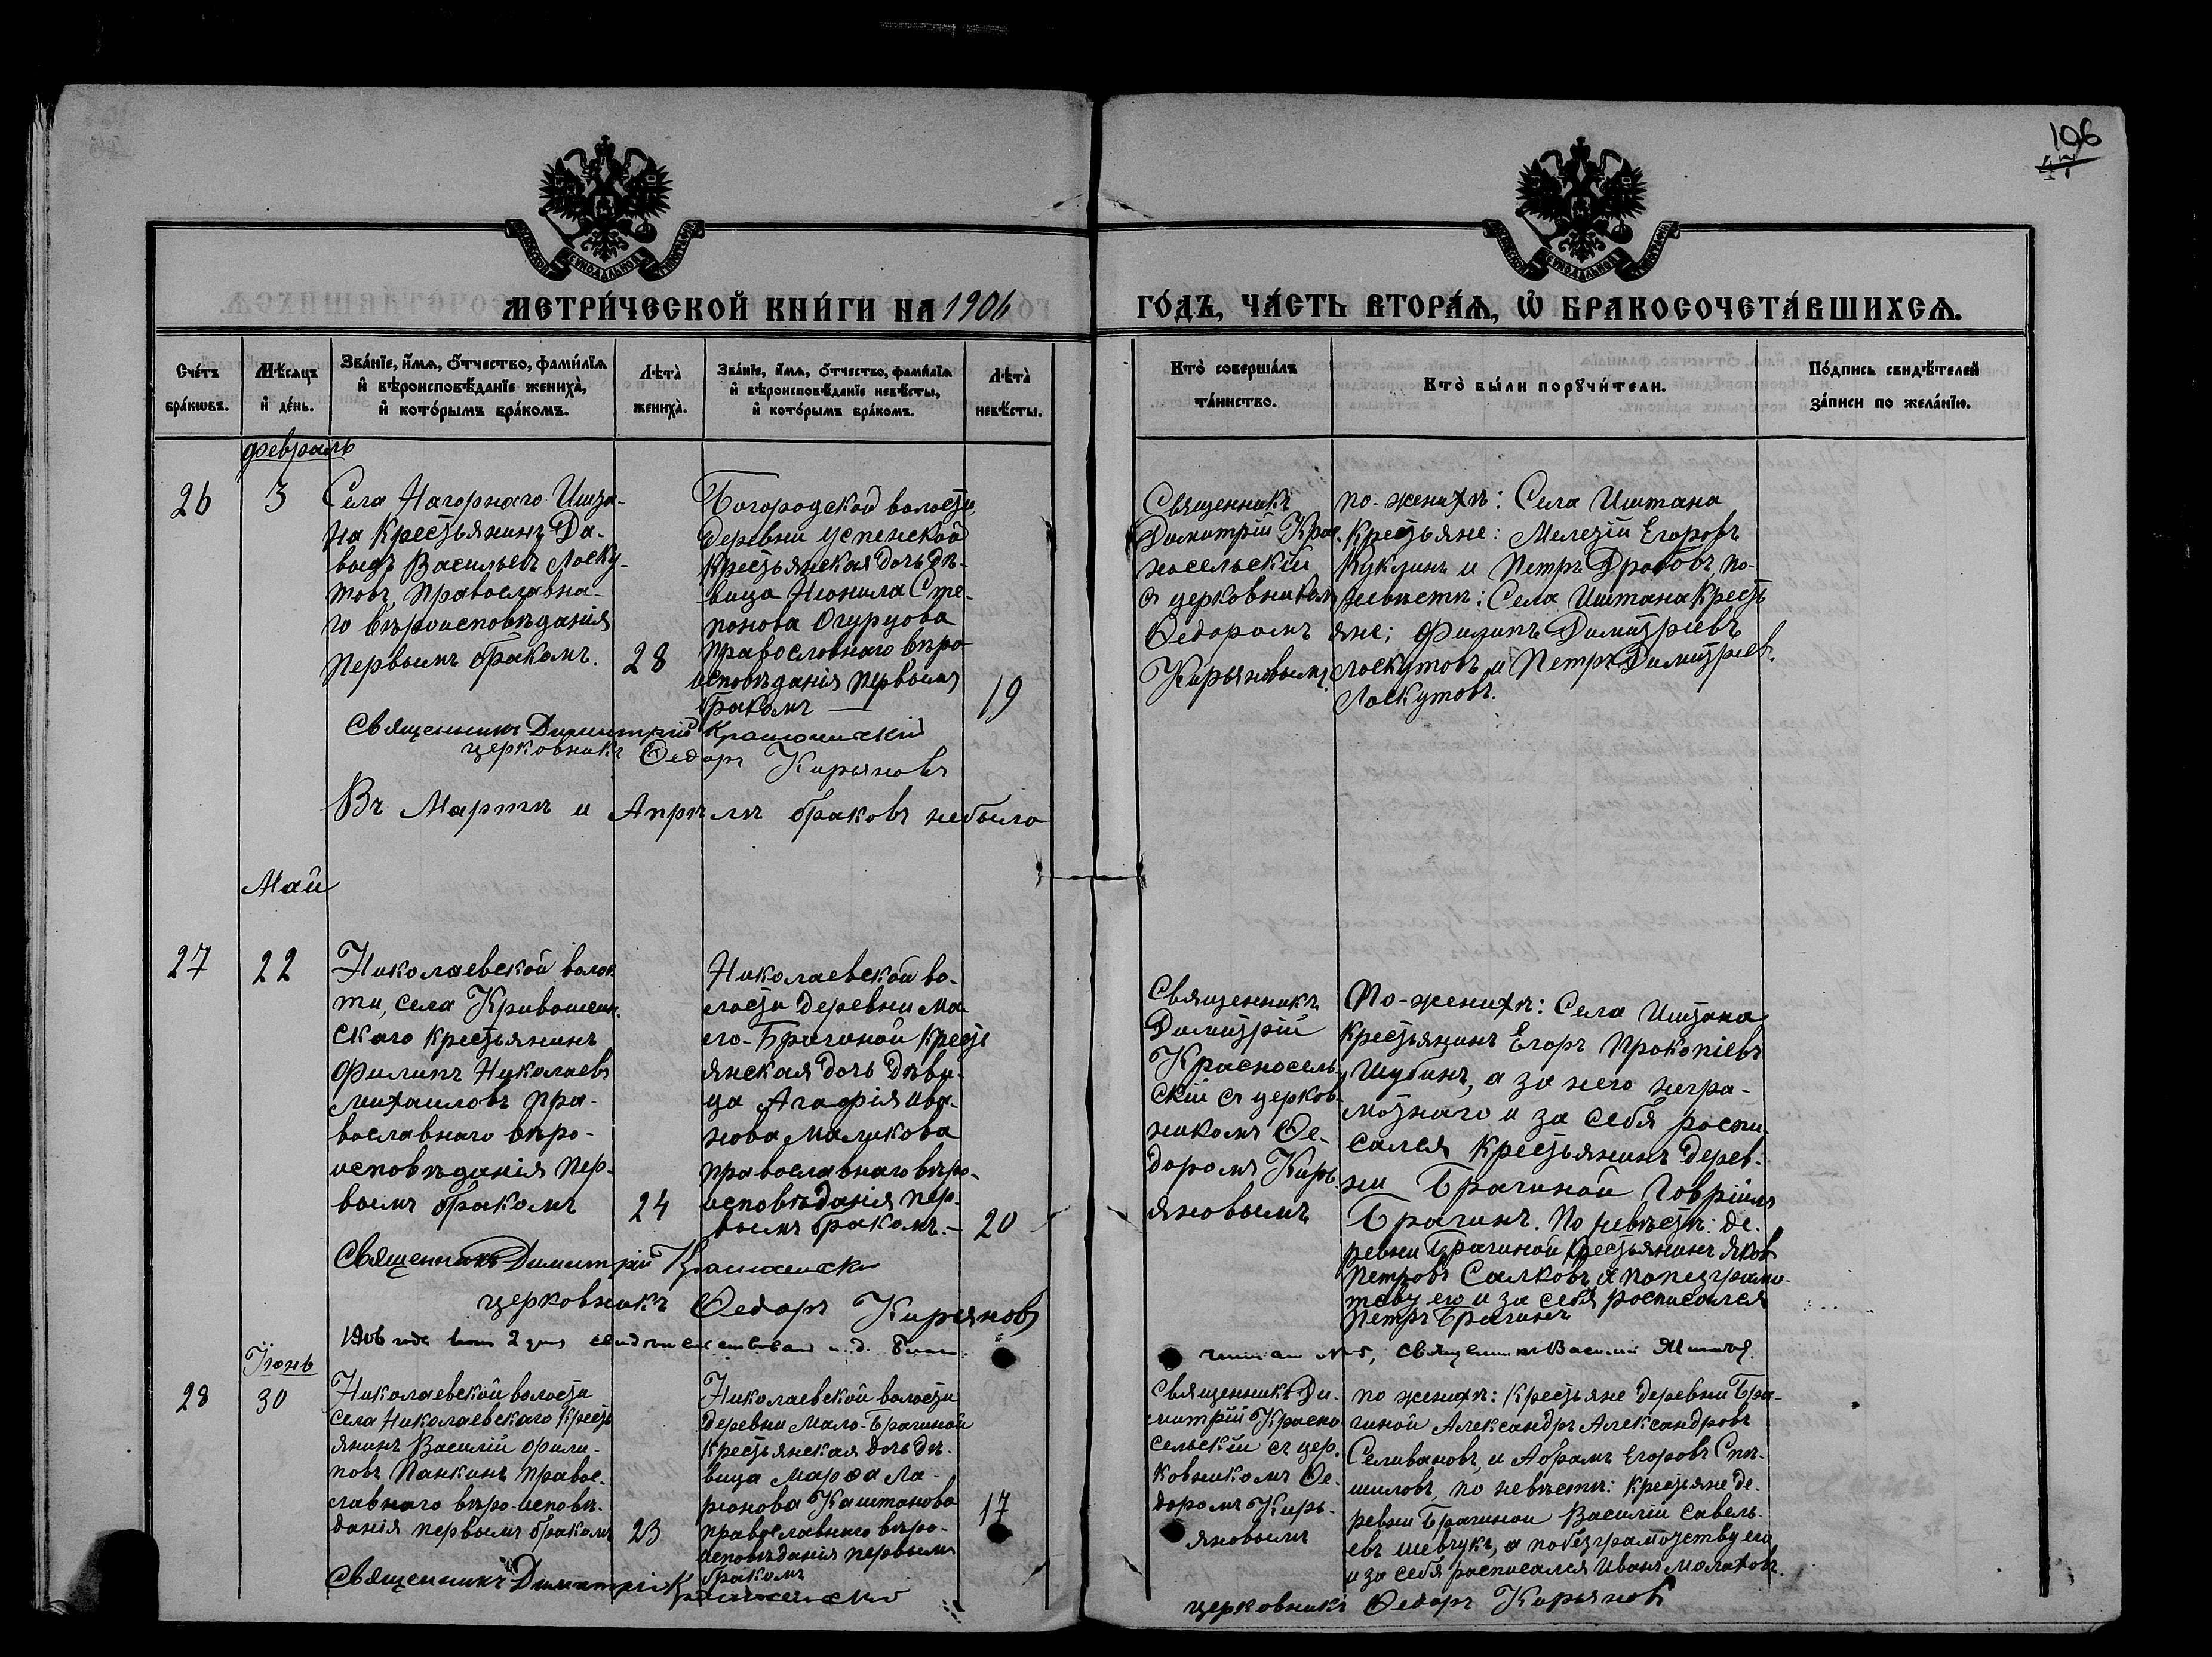 106
47
МЕТРИ́ЧЕСКОЙ КНИ́ГИ НА 1906
ГО́ДЪ, ЧА́СТЬ ВТОРА́Ѧ, Ѡ҆ БРАКОСОЧЕТА́ВШИХСѦ.
Сче́тъ бра́кѡвъ.
Мѣ́сѧцъ и҆ де́нь.
Зва́нїе, и҆́мѧ, ѻ҆́тчество, фами́лїѧ
и҆ вѣроисповѣ́данїе жениха̀,
и҆ кото́рымъ бра́комъ.
Лѣта̀ жениха̀.
Зва́нїе, и҆́мѧ, ѻ҆́тчество, фами́лїѧ
и҆ вѣроисповѣ́данїе невѣ́сты,
и҆ кото́рымъ бра́комъ.
Лѣта̀ невѣ́сты.
Кто̀ соверша́лъ
та́инство.
Кто̀ бы́ли порꙋчи́тели.
По́дпись свидѣ́телей
за́писи по жела́нїю.
Февраль
26
3
Села Нагорнаго Ишта-
на Крестьянинъ Да-
выдъ Васильевъ Лоску-
товъ, Православна-
го вѣроисповѣданія
первымъ бракомъ.
28
Богородской волости,
деревни Успенской
крестьянская дочь дѣ-
вица Неонила Сте-
панова Огурцова
православнаго вѣро
исповѣданія первымъ
бракомъ —
19
Священникъ
Димитрій Крас-
носельскій
съ церковникомъ
Ѳедоромъ
Кирьяновымъ.
по-женихѣ: Села Иштана
Крестьяне: Мелетій Егоровъ
Куклинъ и Петръ Дробовъ, по-
невѣстѣ: Села Иштана Кресть
яне: Филипъ Димитріевъ
Лоскутовъ и Петръ Димитріев.
Лоскутовъ.
Священникъ Димитрій Красносельскій
церковникъ Ѳедоръ Кирьяновъ
Въ Мартѣ и Апрѣлѣ браковъ небыло
Май
27
22
Николаевской волос
ти, села Кривошеин-
скаго крестьянинъ
Филипъ Николаевъ
Михаиловъ пра-
вославнаго вѣро-
исповѣданія пер-
вымъ бракомъ
24
Николаевской во-
лости деревни Ма-
ло-Брагиной кресть
янская дочь дѣви-
ца Агафія Ива-
нова Маликова
православнаго вѣро-
исповѣданія пер-
вымъ бракомъ. —
20
Священникъ
Димитрій
Красносель-
скій съ церков-
никомъ Ѳе-
доромъ Кирь-
яновымъ
По-женихѣ: Села Иштана
крестьянинъ Егоръ Прокопіевъ
Шубинъ, а за него негра-
мотнаго и за себя роспи-
сался крестьянинъ дерев-
ни Брагиной Гавріилъ
Брагинъ. По невѣстѣ: де-
ревни Брагиной крестьянинъ Яковъ
Петровъ Салковъ, а по
его и за себя росписался
Петръ Брагинъ
Священникъ Димитрій Красносельскій
церковникъ Ѳедоръ Кирьяновъ
1906 года 2 дня
Священникъ Василій
Іюнь
28
30
Николаевской волости
села Николаевскаго кресть
янинъ Василій Фили-
повъ Панкинъ правос-
лавнаго вѣро-исповѣ-
данія первымъ бракомъ
23
Николаевской волости
деревни Мало-Брагиной
крестьянская дочь дѣ-
вица Марѳа Ла-
ріонова Каштанова
православнаго вѣро-
исповѣданія первымъ
бракомъ
17
Священникъ Ди-
митрій Красно-
сельскій съ цер-
ковникомъ Ѳе-
доромъ Кирь-
яновымъ
по женихѣ: крестьяне деревни Бра-
гиной Александръ Александровъ
Селивановъ, и Абрамъ Егоровъ Спѣ-
шиловъ, по невѣстѣ: крестьяне де-
ревни Брагиной Василій Савель-
евъ Шевчукъ, а по безграмотству его
и за себя расписался Иванъ Малаховъ.
Священникъ Димитрій Красносельскій
церковникъ Ѳедоръ Кирьяновъ